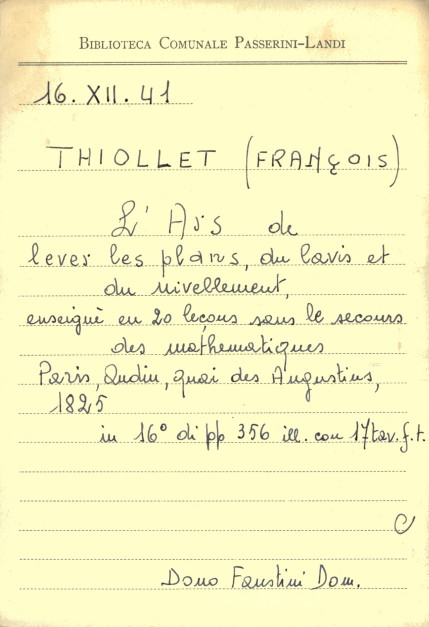 BIBLIOTECA COMUNALE PASSERINI-LANDI
16. XII. 41
THIOLLET (FRANÇOIS)
L' Art de
lever les plans, du lavis et
du nivellement,
enseigné en 20 leçons sans le secours
des mathematiques
Paris, Audin, quai des Augustins,
1825
in 16° di pp 356 ill. con 17 tav. f. t.
C
Dono Faustini Dom.